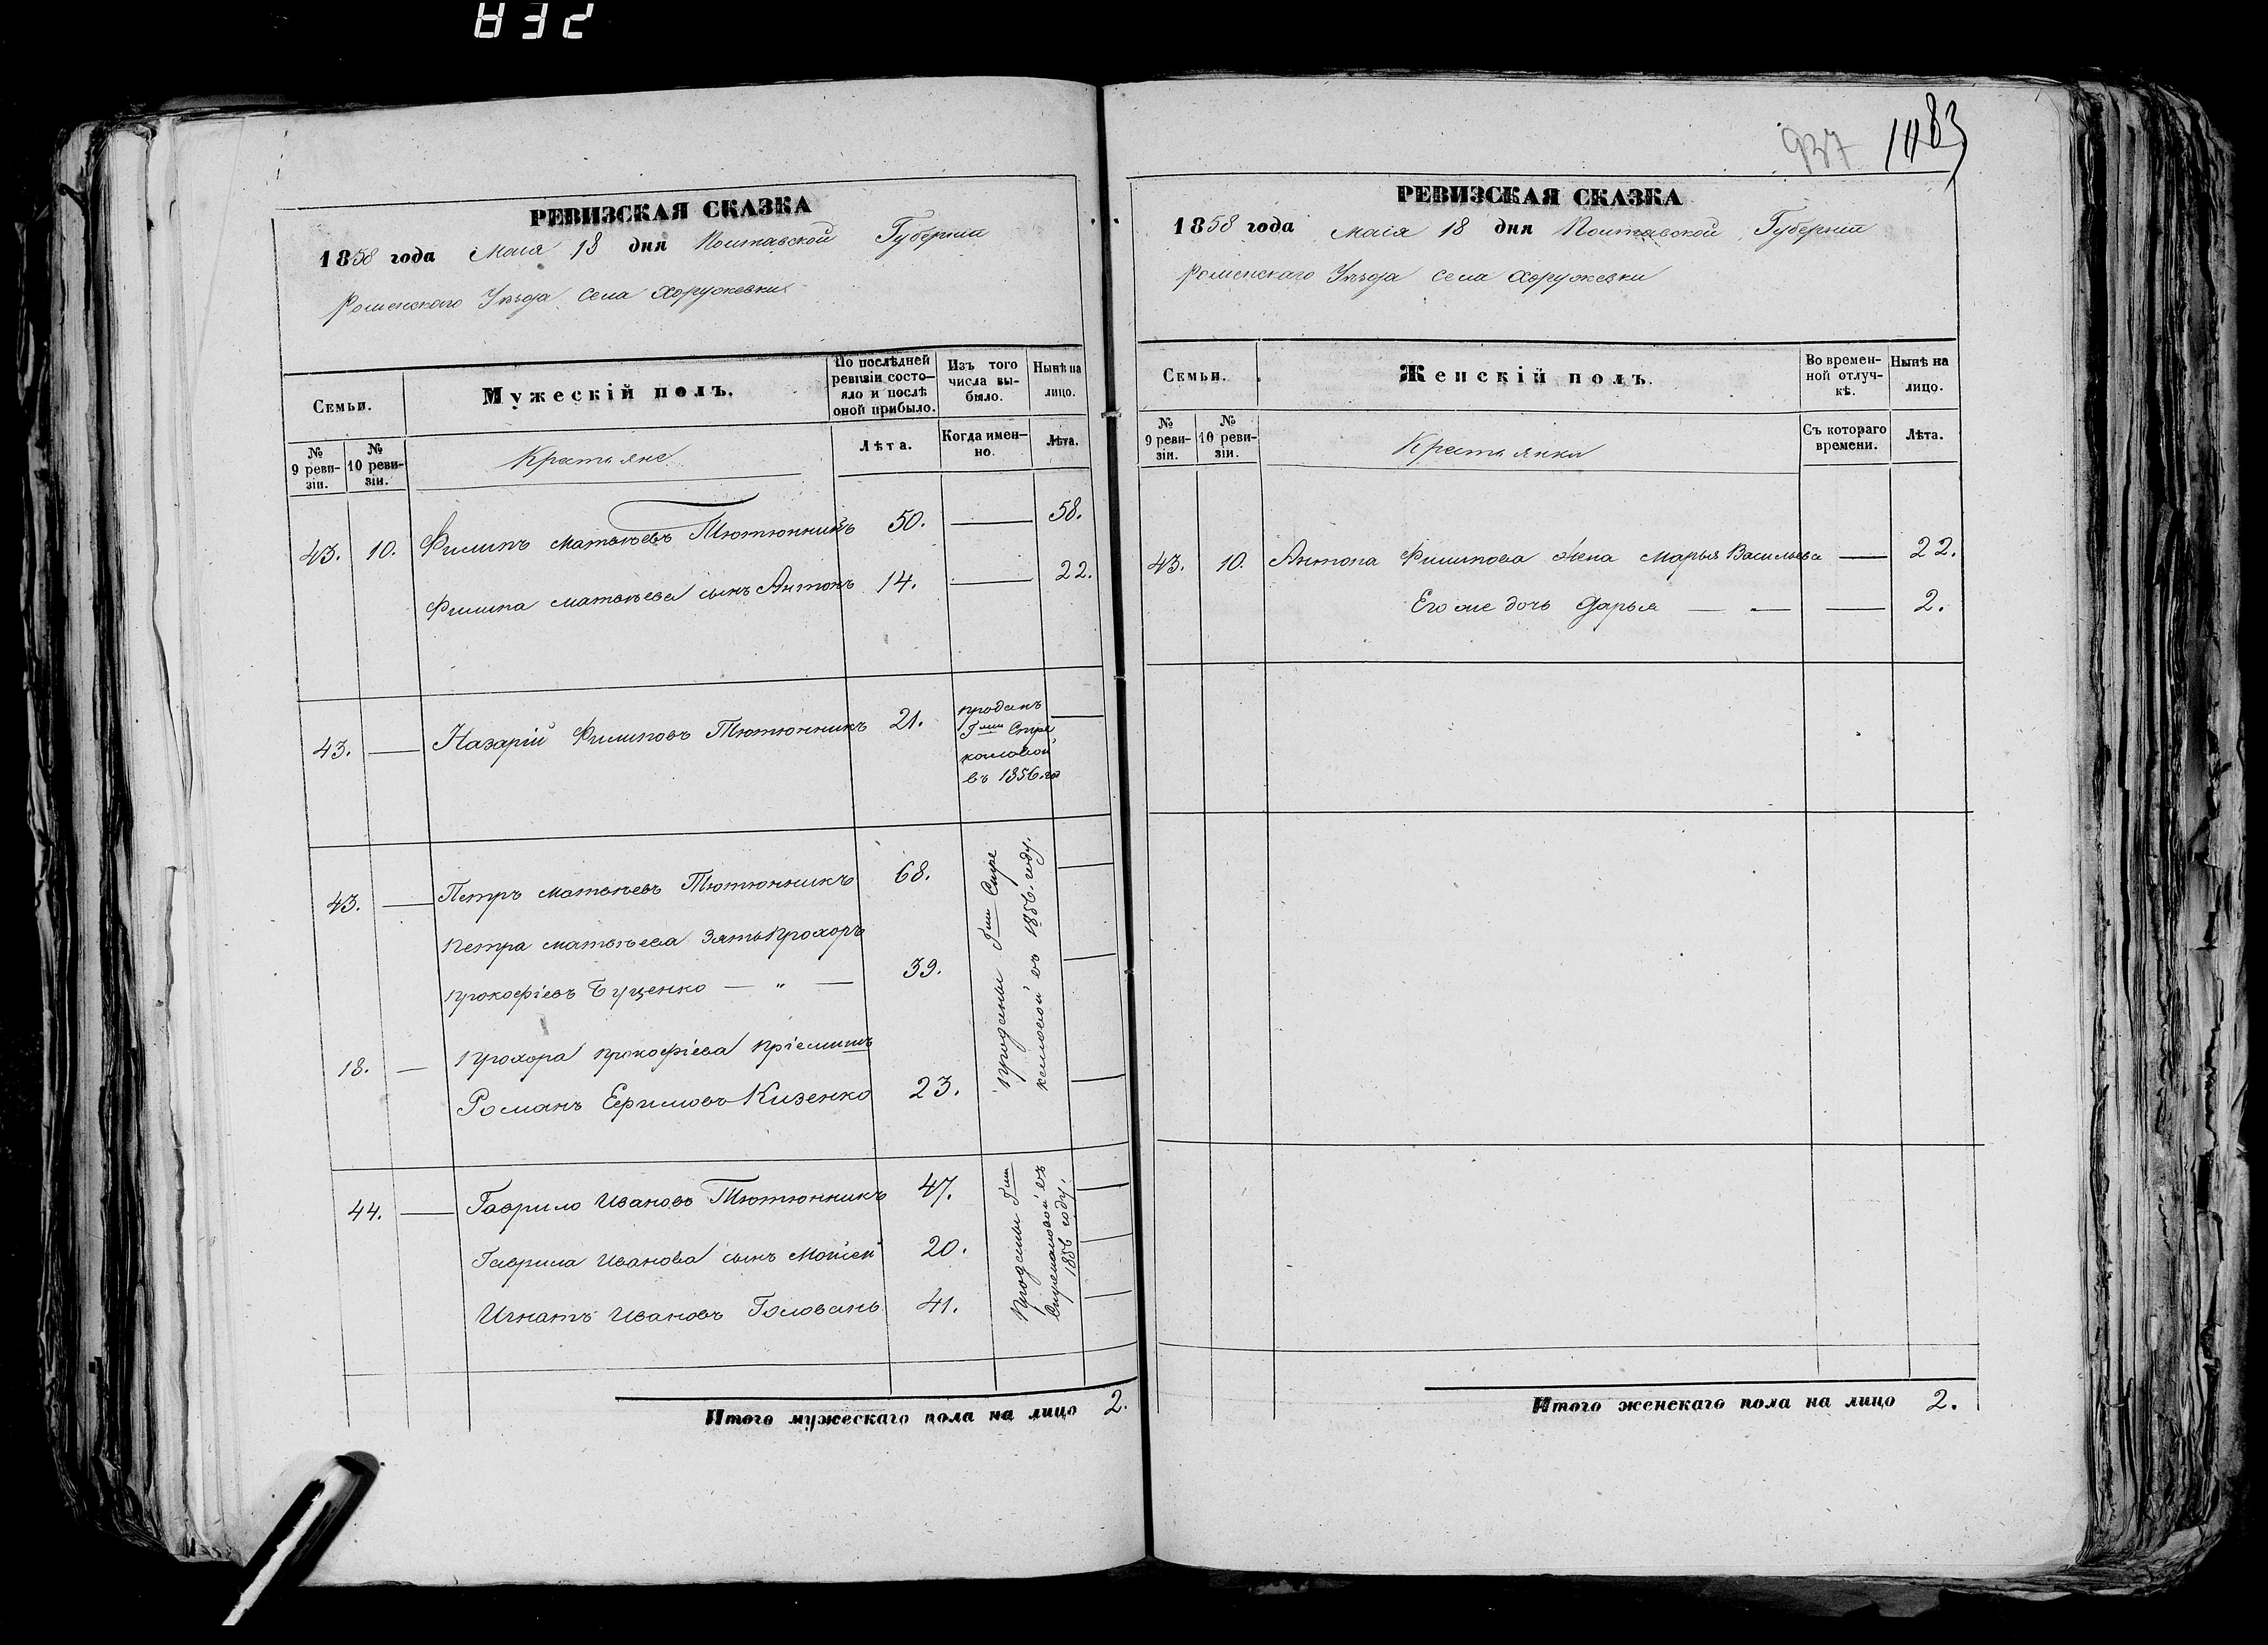 832
РЕВИЗСКАЯ СКАЗКА
1858 года Маія 18 дня Полтавской Губерніи
Роменскаго Уѣзда села Хоружевки
Семьи.
Мужескій полъ.
По послѣдней ревизіи состо-
яло и послѣ
оной прибыло.
Изъ того
числа вы-
было.
Нынѣ на
лицо.
№
9 реви-
зіи.
№
10 реви-
зіи.
Крестьяне
Лѣта.
Когда имен-
но.
Лѣта.
43. 10. Филипъ Матвѣевъ Тютюнникъ 50. — 58.
Филипа Матвѣева сынъ Антонъ 14. — 22.
43. — Назарій Филиповъ Тютюнникъ 21. —
проданъ
Гжи Стре
каловой
въ 1856.го
43. — Петръ Матвѣевъ Тютюнникъ 68. —
Петра Матвѣева зять Прохоръ
Прокофіевъ Буценко — „ — 39. —
18. — Прохора Прокофіева пріемышъ
Романъ Ефимовъ Кизенко 23. —
проданы Гжи Стре
каловой въ 1856.году.
44. — Гаврило Ивановъ Тютюнникъ 47. —
Гаврила Иванова сынъ Мойсей 20. —
Игнатъ Ивановъ Головань 41. —
проданы Гжи
Стрекаловой въ
1856 году.
Итого мужескаго пола на лицо 2.
937 1183
РЕВИЗСКАЯ СКАЗКА
1858 года Маія 18 дня Полтавской Губерніи
Роменскаго Уѣзда села Хоружевки
Семьи.
Женскій полъ.
Во времен-
ной отлуч-
кѣ.
Нынѣ на
лицо.
№
9 реви-
зіи.
№
10 реви-
зіи.
Крестьянки
Съ котораго
времени.
Лѣта.
43. 10. Антона Филипова жена Марья Васильева — 22.
Его же дочь Дарья — — — 2.
Итого женскаго пола на лицо 2.